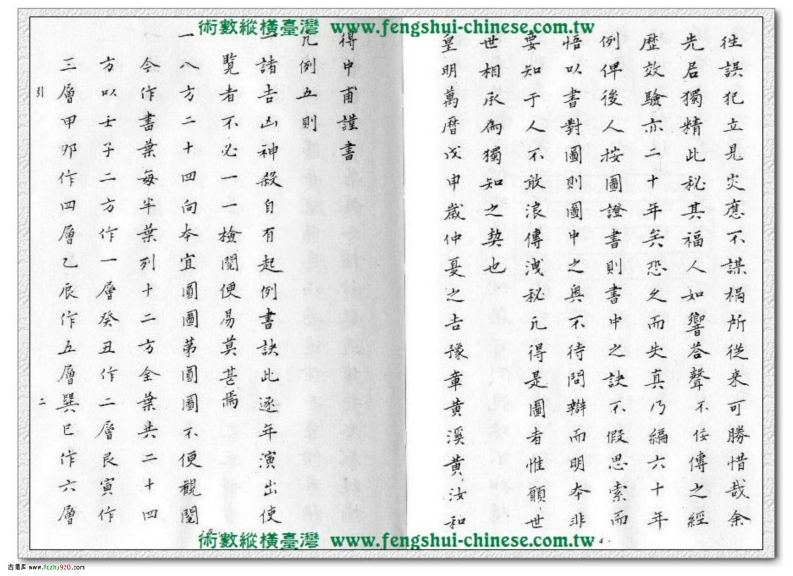 術數縱橫臺灣 www.fengshui-chinese.com.tw
往誤犯立見災應不謀禍所從来可勝惜哉余
先居獨精此秘其福人如響荅聲不佞傳之經
歷效驗亦二十年矣恐久而失真乃編六十年
例俾後人按圖證書則書中之訣不假思索而
悟以書對圖則圖中之奥不待問辯而明本非
要知于人不敢浪傳洩秘凢得是圖者惟願世
世相承為獨知之契也
皇明萬曆戊申歲仲夏之吉豫章黃溪黃汝和
得中甫謹書
凢例五則
一諸吉凶神殺自有起例書訣此逐年演出使
覽者不必一一檢閱便易莫甚焉
一八方二十四向本宜圓圖第圓圖不便觀閱
今作書葉每半葉列十二方全葉共二十四
方以壬子二方作一層癸丑作二層艮寅作
三層甲卯作四層乙辰作五層巽巳作六層
引 二
術數縱橫臺灣 www.fengshui-chinese.com.tw
www.fczhy920.com